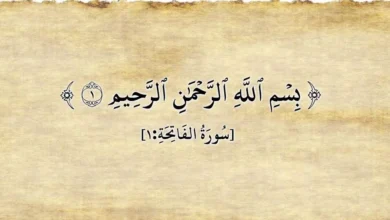 ﴿ بِسْمِ ٱللَّهِ ٱلرَّحْمَٰنِ ٱلرَّحِيمِ ۝١ ﴾
[سُورَةُ الفَاتِحَةِ:١]